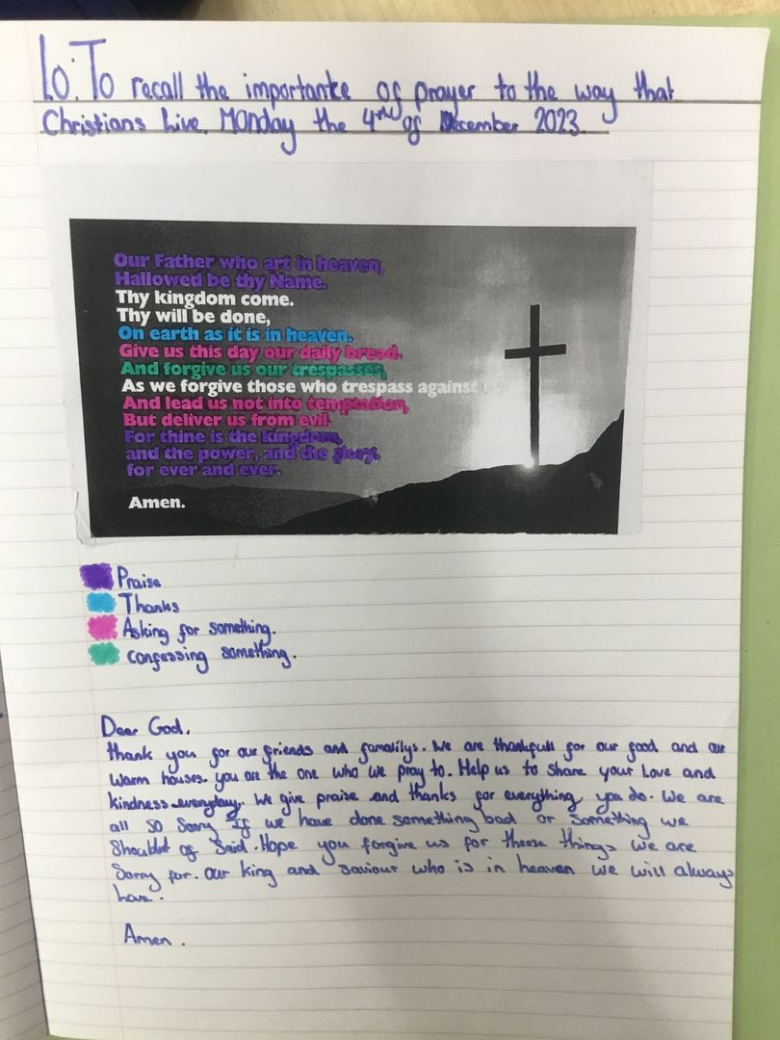 Lo: To recall the importante of prayer to the way that
Christians Live. Monday the 4nd of December 2023
Our Father who art in heaven,
Hallowed be thy Name.
Thy kingdom come.
Thy will be done,
On earth as it is in heaven.
Give us this day our daily bread.
And forgive us our trespasses,
As we forgive those who trespass against
And lead us not into temptation,
But deliver us from evil.
For thine is the kingdom,
and the power, and the glory,
for ever and ever.
Amen.
Praise
Thanks
Asking for something.
Confessing something.
Dear God,
thank you for our friends and famalilys. We are thankfull for our food and our
warm houses. you are the one who we pray to. Help us to share your Love and
kindness everyday. We give praise and thanks for everything you do. We are
all so sorry If we have done something bad or something we
Shouldnt of Said. Hope you forgive us for theese things we are
Sorry for. Our king and saviour who is in heaven we will always
Amen.